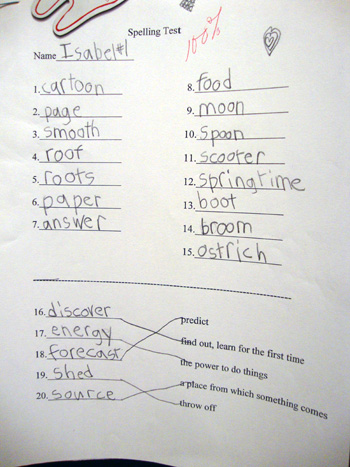 Spelling Test
100%
Name Isabel#1
1. cartoon
2. page
3. smooth
4. roof
5. roots
6. paper
7. answer
8. food
9. moon
10. spoon
11. scooter
12. springtime
13. boot
14. broom
15. ostrich
16. discover
17. energy
18. forecast
19. shed
20. source
predict
find out, learn for the first time
the power to do things
a place from which something comes
throw off